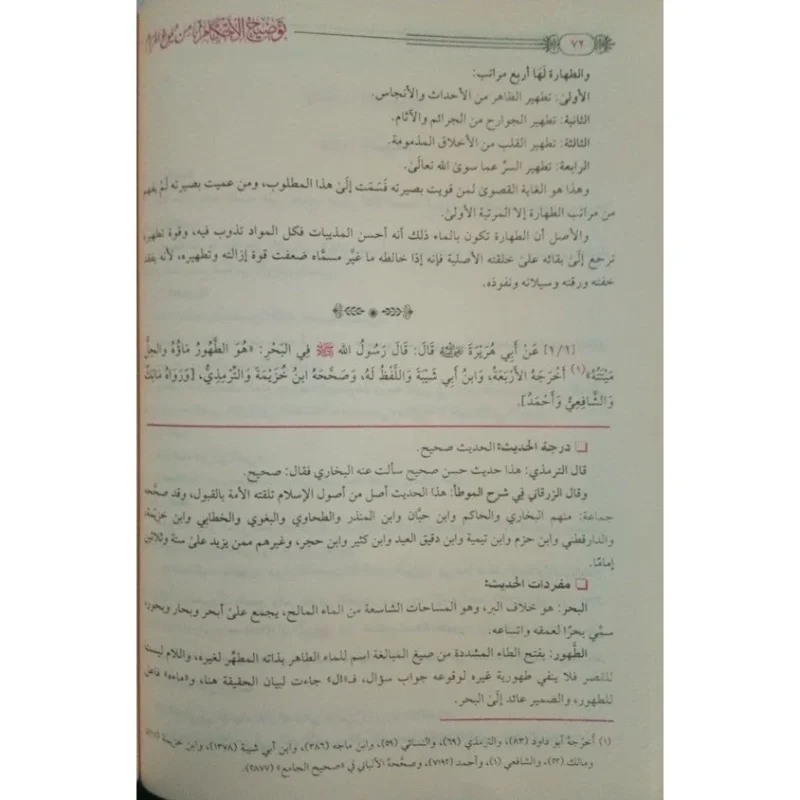 ٧٢
توضيح الأحكام من بلوغ المرام
والطهارة لَهَا أربع مراتب:
الأولىٰ: تطهير الظاهر من الأحداث والأنجاس.
الثانية: تطهير الجوارح من الجرائم والآثام.
الثالثة: تطهير القلب من الأخلاق المذمومة.
الرابعة: تطهير السرِّ عما سوىٰ الله تعالَىٰ.
وهذا هو الغاية القصوىٰ لمن قويت بصيرته فَسَمَت إلَىٰ هذا المطلوب، ومن عميت بصيرته لَمْ يفهم
من مراتب الطهارة إلا المرتبة الأولىٰ.
والأصل أن الطهارة تكون بالماء ذلك أنه أحسن المذيبات فكل المواد تذوب فيه، وقوة تطهيره
ترجع إلَىٰ بقائه علىٰ خلقته الأصلية فإنه إذا خالطه ما غيَّر مسمَّاه ضعفت قوة إزالته وتطهيره، لأنه يفقد
خفته ورقته وسيلانه ونفوذه.
[١/٢] عَنْ أَبِي هُرَيْرَةَ ﵁ قَالَ: قَالَ رَسُولُ الله ﷺ فِي البَحْرِ: «هُوَ الطَّهُورُ مَاؤُهُ والحِلُّ
مَيْتَتُهُ»(١) أَخْرَجَهُ الأَرْبَعَةُ، وَابنُ أَبِي شَيْبَةَ وَاللَّفْظُ لَهُ، وَصَحَّحَهُ ابنُ خُزَيْمَةَ وَالتِّرْمِذِيُّ، [وَرَوَاهُ مَالِكٌ
وَالشَّافِعِيُّ وَأَحْمَدُ].
❑ درجة الحديث: الحديث صحيح.
قال الترمذي: هذا حديث حسن صحيح سألت عنه البخاري فقال: صحيح.
وقال الزرقاني فِي شرح الموطأ: هذا الحديث أصل من أصول الإسلام تلقته الأمة بالقبول، وقد صحَّحه
جماعة: منهم البخاري والحاكم وابن حبَّان وابن المنذر والطحاوي والبغوي والخطابي وابن خزيمة،
والدارقطني وابن حزم وابن تيمية وابن دقيق العيد وابن كثير وابن حجر، وغيرهم ممن يزيد علىٰ ستة وثلاثين
إمامًا.
❑ مفردات الحديث:
البحر: هو خلاف البر، وهو المساحات الشاسعة من الماء المالح، يجمع علىٰ أبحر وبحار وبحور،
سمِّي بحرًا لعمقه واتساعه.
الطَّهور: بفتح الطاء المشددة من صيغ المبالغة اسم للماء الطاهر بذاته المطهِّر لغيره، واللام ليست
للقصر فلا ينفي طهورية غيره لوقوعه جواب سؤال، فـ«ال» جاءت لبيان الحقيقة هنا، و«ماءه» فاعل
للطهور، والضمير عائد إلَىٰ البحر.
(١) أخرجه أبو داود (٨٣)، والترمذي (٦٩)، والنسائي (٥٩)، وابن ماجه (٣٨٦)، وابن أبي شيبة (١٣٧٨)، وابن خزيمة
ومالك (٥٣)، والشافعي (١)، وأحمد (٧١٩٢)، وصحَّحهُ الألباني فِي «صحيح الجامع» (٢٨٧٧).